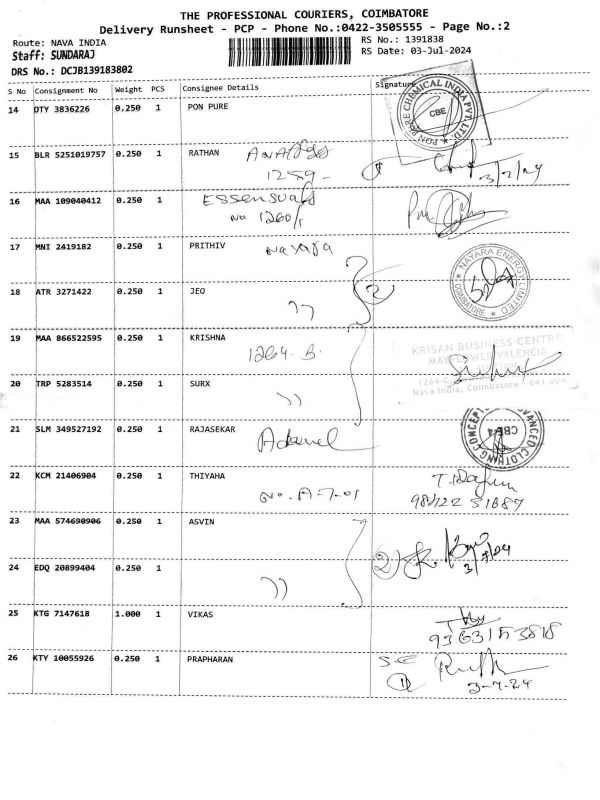 THE PROFESSIONAL COURIERS, COIMBATORE
Delivery Runsheet - PCP - Phone No.:0422-3505555 - Page No.:2
Route: NAVA INDIA
RS No.: 1391838
Staff: SUNDARAJ
RS Date: 03-Jul-2024
DRS No.: DCJB139183802
S No Consignment No Weight PCS Consignee Details Signature
14 DTY 3836226 0.250 1 PON PURE
PON PURE CHEMICAL INDIA PVT. LTD. CBE
15 BLR 5251019757 0.250 1 RATHAN
1259 -
16 MAA 109040412 0.250 1 ESSENSUALS
No 1260/1
17 MNI 2419182 0.250 1 PRITHIV Nayara
NAYARA ENERGY LIMITED COIMBATORE
18 ATR 3271422 0.250 1 JEO
2
19 MAA 866522595 0.250 1 KRISHNA
1264-B.
KRISAN BUSINESS CENTRE
MAYFLOWER VALENCIA
Nava India, Coimbatore - 641 004.
20 TRP 5283514 0.250 1 SURX
21 SLM 349527192 0.250 1 RAJASEKAR
ADVANCED CLOTHING CONCEPTS CBE-4
22 KCM 21406904 0.250 1 THIYAHA
No. A-7-01
23 MAA 574690906 0.250 1 ASVIN
24 EDQ 20899404 0.250 1
2
25 KTG 7147618 1.000 1 VIKAS
26 KTY 10055926 0.250 1 PRAPHARAN
1
3-7-24